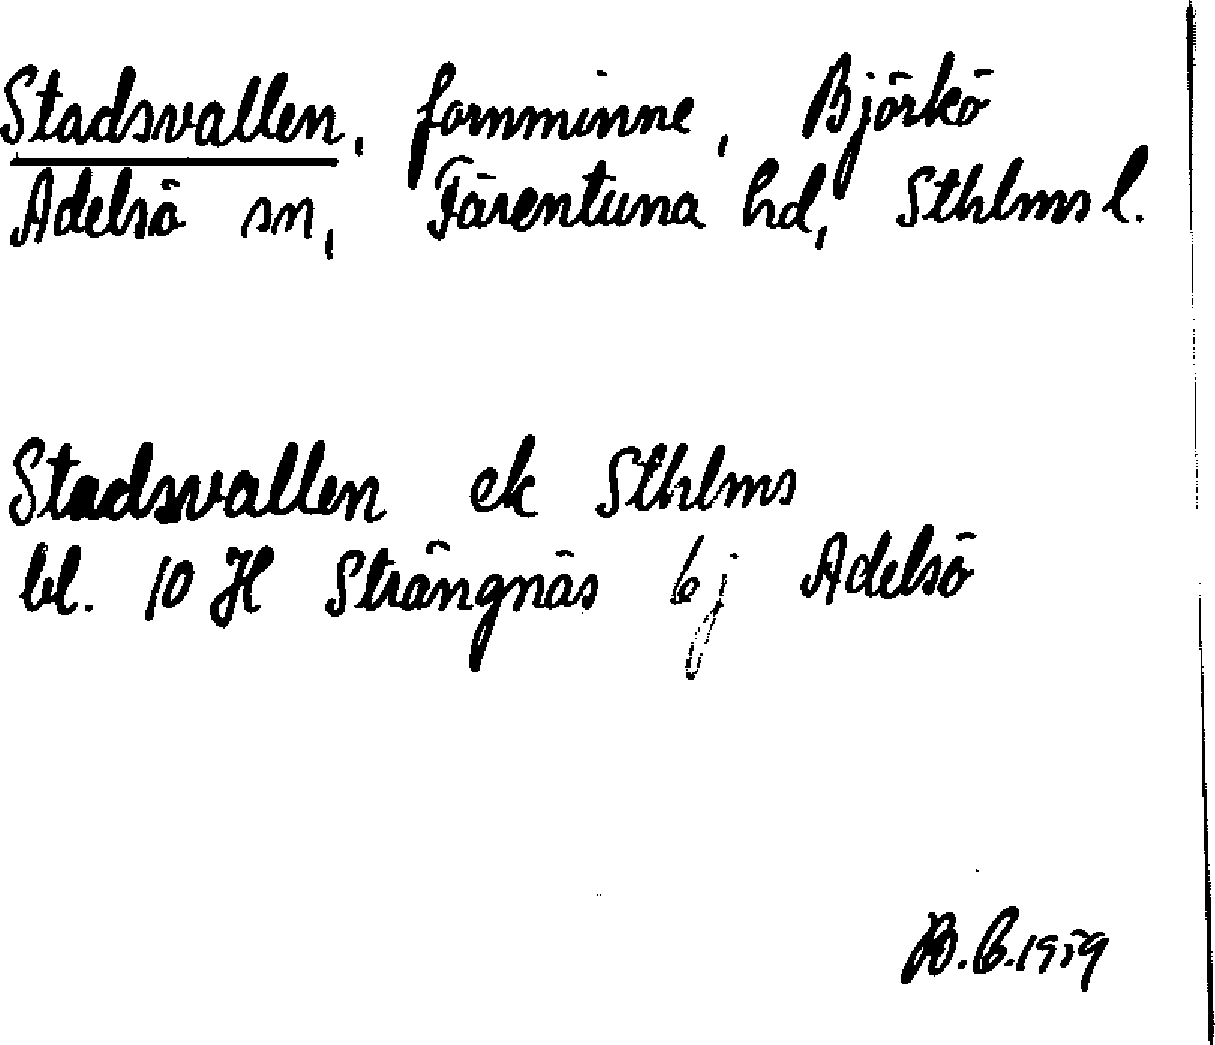 Stadsvallen, fornminne, Björkö
Adelsö sn, Färentuna hd, Sthlms l.
Stadsvallen ek Sthlms
bl. 10 H Strängnäs 6j Adelsö
B.E.1959